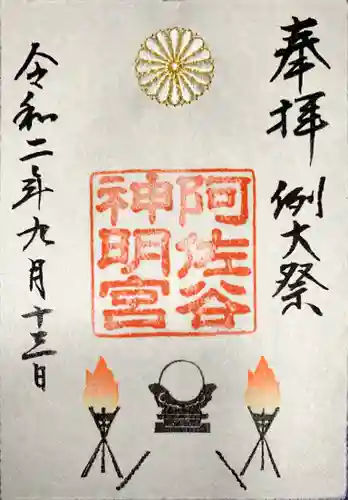 奉拝 例大祭
阿佐谷
神明宮
令和二年九月十三日